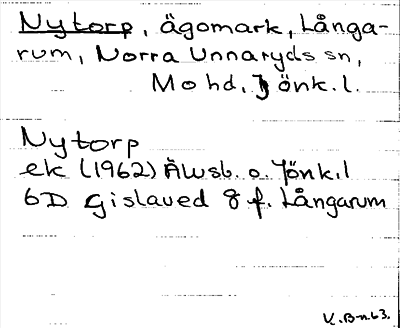 Nytorp, ägomark, Långa-
rum, Norra Unnaryds sn,
Mo hd, Jönk. l.
Nytorp
ek (1962) Älvsb. o. Jönk.l
6D Gislaved 8 f. Långarum
K.B-n.63.